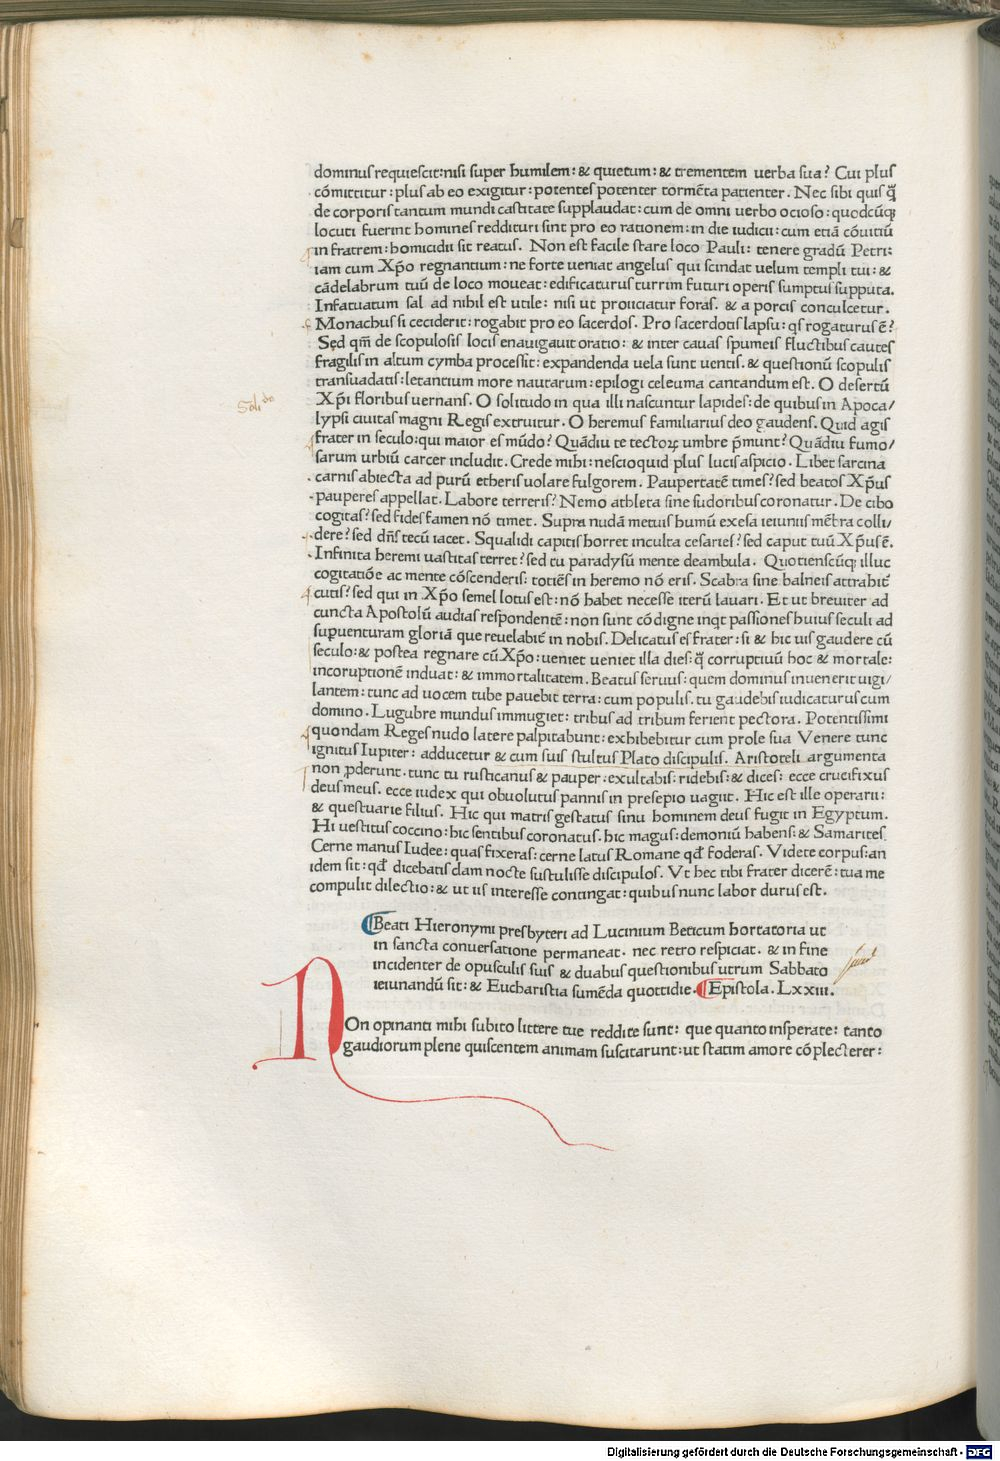 dominus requiescit:nisi super humilem: & quietum: & trementem uerba sua? Cui plus
cōmittitur: plus ab eo exigitur: potentes potenter tormēta patienter. Nec sibi quis q̄
de corporis tantum mundi castitate supplaudat: cum de omni uerbo ocioso: quodcūq;
locuti fuerint homines reddituri sint pro eo rationem: in die iudicii: cum etiā cōuitiū
in fratrem: homicidii sit reatus. Non est facile stare loco Pauli: tenere gradū Petri:
iam cum Xp̄o regnantium: ne forte ueniat angelus qui scindat uelum templi tui: &
cādelabrum tuū de loco moueat: edificaturus turrim futuri operis sumptus supputa.
Infatuatum sal ad nihil est utile: nisi ut proiiciatur foras. & a porcis conculcetur.
Monachus si ceciderit: rogabit pro eo sacerdos. Pro sacerdotis lapsu: q̄s rogaturus ē?
Sed qm̄ de scopulosis locis enauigauit oratio: & inter cauas spumeis fluctibus cautes
fragilis in altum cymba processit: expandenda uela sunt uentis. & questionū scopulis
transuadatis: letantium more nautarum: epilogi celeuma cantandum est. O desertū
Xp̄i floribus uernans. O solitudo in qua illi nascuntur lapides: de quibus in Apoca/
lypsi ciuitas magni Regis extruitur. O heremus familiarius deo gaudens. Quid agis
frater in seculo: qui maior es mūdo? Quādiu te tectoꝝ umbre p̄munt? Quādiu fumo/
sarum urbiū carcer includit. Crede mihi: nescioquid plus lucis aspicio. Libet sarcina
carnis abiecta ad purū etheris uolare fulgorem. Paupertatē times? sed beatos Xp̄us
pauperes appellat. Labore terreris? Nemo athleta sine sudoribus coronatur. De cibo
cogitas? sed fides famen nō timet. Supra nudā metuis humū exesa ieiuniis mēbra colli/
dere? sed dn̄s tecū iacet. Squalidi capitis horret inculta cesaries? sed caput tuū Xp̄us ē.
Infinita heremi uastitas terret? sed tu paradysū mente deambula. Quotienscūq; illuc
cogitatiōe ac mente cōscenderis: totiēs in heremo nō eris. Scabra sine balneis attrahit̄
cutis? sed qui in Xp̄o semel lotus est: nō habet necesse iterū lauari. Et ut breuiter ad
cuncta Apostolū audias respondentē: non sunt cōdigne inqt passiones huius seculi ad
supuenturam gloriā que reuelabit̄ in nobis. Delicatus es frater: si & hic uis gaudere cū
seculo: & postea regnare cū Xp̄o: ueniet ueniet illa dies: q̄ corruptiuū hoc & mortale:
incoruptionē induat: & immortalitatem. Beatus seruus: quem dominus inuenerit uigi/
lantem: tunc ad uocem tube pauebit terra: cum populis. tu gaudebis iudicaturus cum
domino. Lugubre mundus immugiet: tribus ad tribum ferient pectora. Potentissimi
quondam Reges nudo latere palpitabunt: exhibebitur cum prole sua Venere tunc
ignitus Iupiter: adducetur & cum suis stultus Plato discipulis. Aristoteli argumenta
non ꝓderunt. tunc tu rusticanus & pauper: exultabis: ridebis: & dices: ecce crucifixus
deus meus. ecce iudex qui obuolutus pannis in presepio uagiit. Hic est ille operarii:
& questuarie filius. Hic qui matris gestatus sinu hominem deus fugit in Egyptum.
Hi uestitus coccino: hic sentibus coronatus. hic magus: demoniū habens: & Samarites.
Cerne manus Iudee: quas fixeras: cerne latus Romane qd̄ foderas. Videte corpus: an
idem sit: qd̄ dicebatis clam nocte sustulisse discipulos. Vt hec tibi frater dicerē: tua me
compulit dilectio: & ut iis interesse contingat: quibus nunc labor durus est.
Beati Hieronymi presbyteri ad Lucinium Beticum hortatoria ut
in sancta conuersatione permaneat. nec retro respiciat. & in fine
incidenter de opusculis suis & duabus questionibus utrum Sabbato
ieiunandū sit: & Eucharistia sumēda quottidie. Epistola. Lxxiii.
NOn opinanti mihi subito littere tue reddite sunt: que quanto insperate: tanto
gaudiorum plene quiscentem animam suscitarunt: ut statim amore cōplecterer:
Digitalisierung gefördert durch die Deutsche Forschungsgemeinschaft - DFG